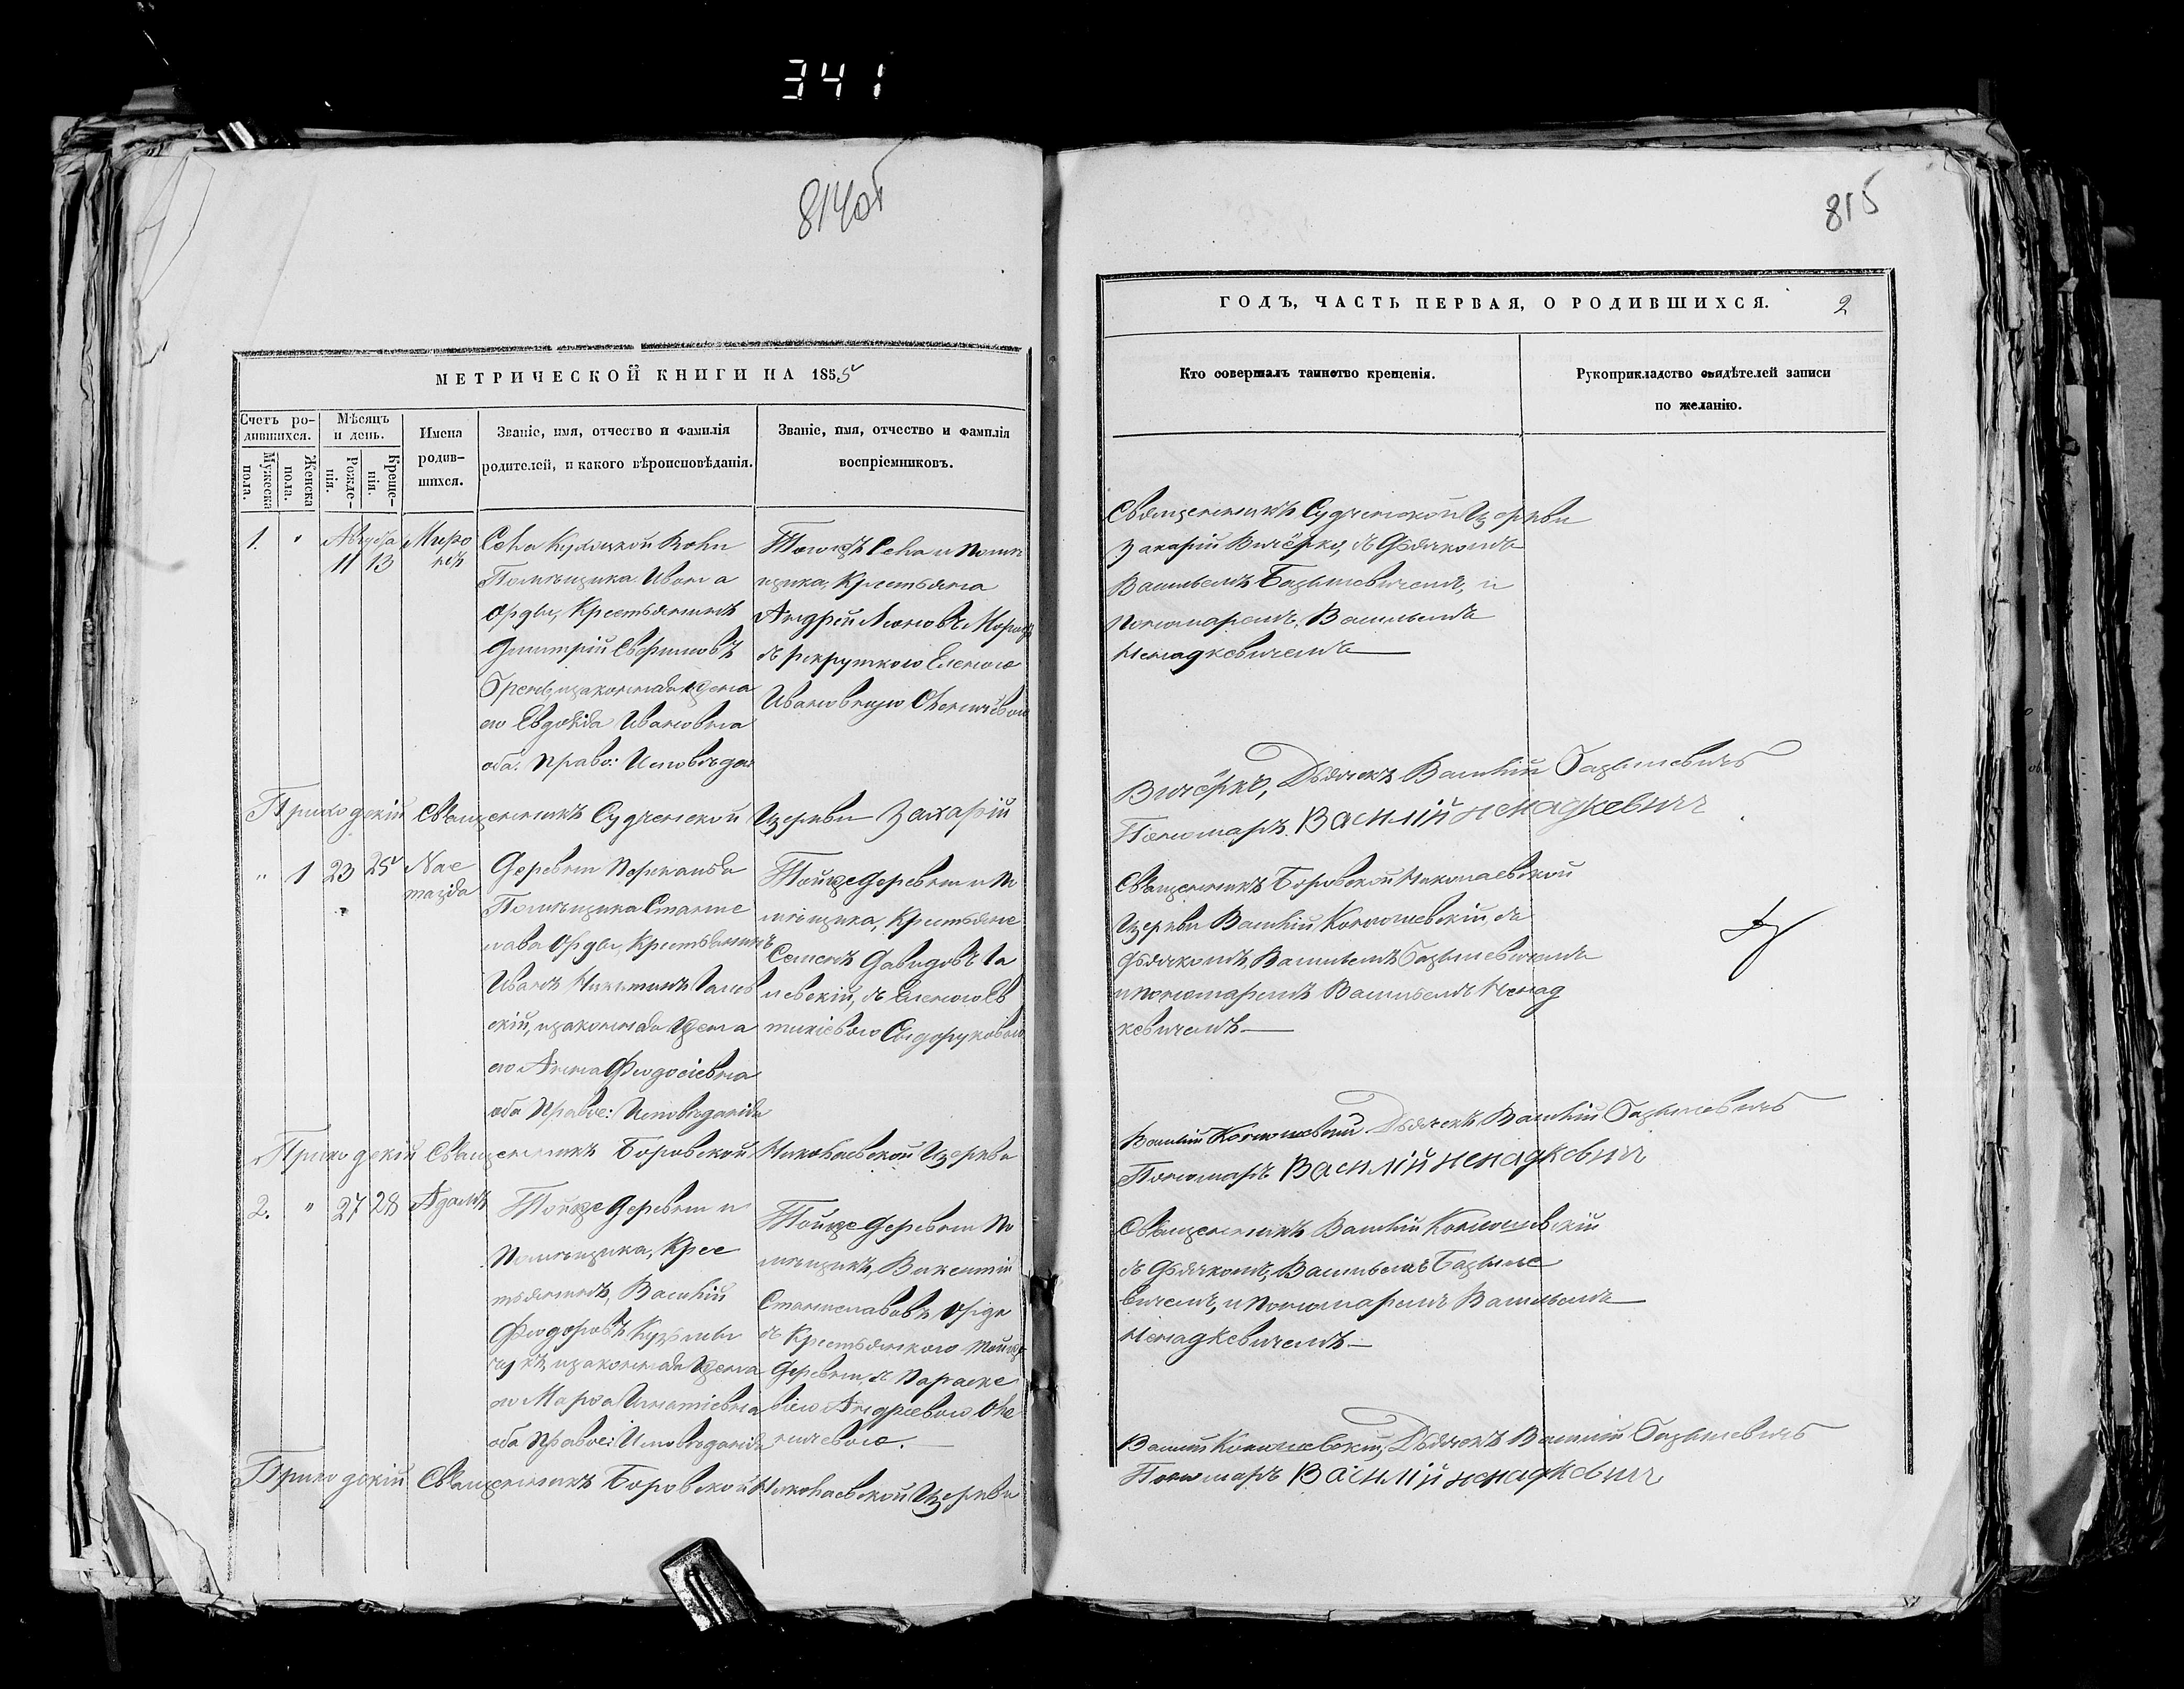 341
814об
МЕТРИЧЕСКОЙ КНИГИ НА 1855
Счетъ ро-
дившихся.
Мужеска
пола.
Женска
пола.
Мѣсяцъ
и день.
Рожде-
нія.
Креще-
нія.
Имена
родив-
шихся.
Званіе, имя, отчество и фамилія
родителей, и какого вѣроисповѣданія.
Званіе, имя, отчество и фамилія
воспріемниковъ.
1.
"
Августа
11 13
Миро
нъ
Села
Помѣщика Ивана
Орды, Крестьянинъ
Димитрій
законная жена
его Евдокія Ивановна
оба: Право: Исповѣда
Тогожъ Села и Помѣ
щика, Крестьянинъ
Андрей
съ рекруткою Еленою
Ивановною
Приходскій Священникъ Судченской Церкви Захарій
"
1
23
25
Нас
тазія
Деревни
Помѣщика Станис
лава Орды, Крестьянинъ
Иванъ
скій, и законная жена
его Анна Феодосіевна
оба Правос: Исповѣданія
Тойже Деревни и По
мѣщика, Крестьяне
Семенъ Давидовъ Га
левскій, съ Еленою Ев
Приходскій Священникъ Боровской Николаевской Церкви
2.
"
27
28
Адамъ
Тойже Деревни и
Помѣщика, Крес
тьянинъ, Василій
Феодоровъ
законная жена
его Марфа Игнатіевна
оба Правос: Исповѣданія
Тойже Деревни По
мѣщикъ, Викентій
Станиславовъ Орда
съ Крестьянкою тойже
Деревни, съ Параске
віею Андреевою
Приходскій Священникъ Боровской Николаевской Церкви
815
ГОДЪ, ЧАСТЬ ПЕРВАЯ, О РОДИВШИХСЯ.
2
Кто совершалъ таинство крещенія.
Рукоприкладство свидѣтелей записи
по желанію.
Священникъ Судченской Церкви
Захарій Вичёрко, съ Дьячкомъ
Васильемъ Базылевичемъ, и
Пономаремъ, Васильемъ
Ненадкевичемъ
Вичёрко, Дьячекъ Василій Базылевичъ
Пономарь Василій Ненадкевичъ
Священникъ Боровской Николаевской
Церкви Василій съ
Дьячкомъ, Васильемъ Базылевичемъ
и Пономаремъ Васильемъ Ненад
кевичемъ
Василій Дьячекъ Василій Базылевичъ
Пономарь Василій Ненадкевичъ
Священникъ Василій
съ Дьячкомъ, Васильемъ Базыле
вичемъ, и Пономаремъ Васильемъ
Ненадкевичемъ
Василій Дьячекъ Василій Базылевичъ
Пономарь Василій Ненадкевичъ